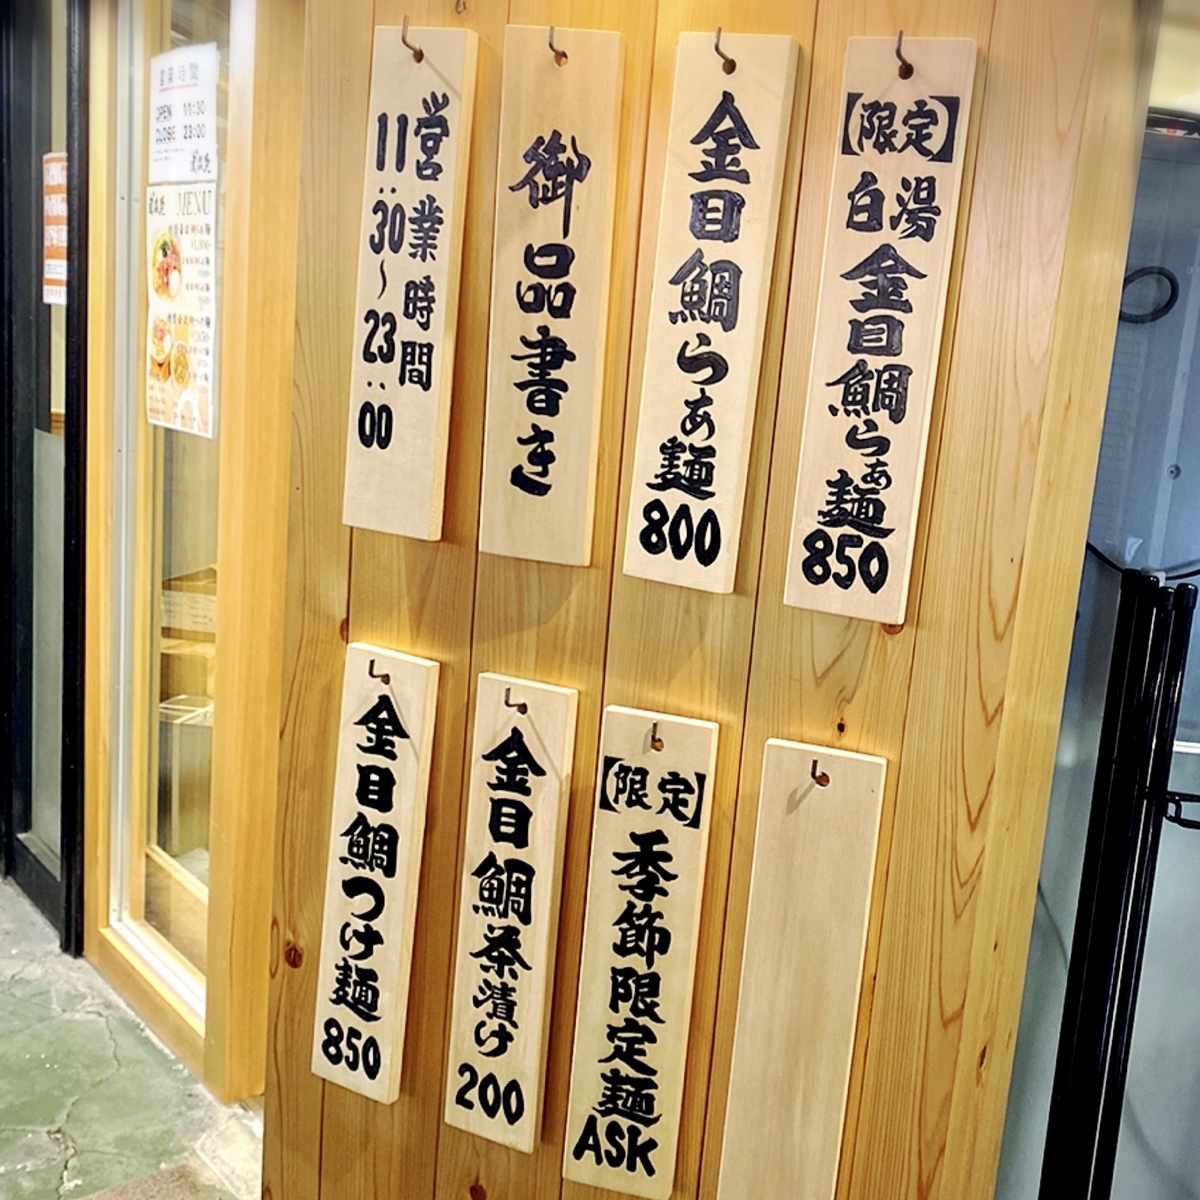 営業時間
11:30～23:00
御品書き
金目鯛らぁ麺
800
【限定】
白湯金目鯛らぁ麺
850
金目鯛つけ麺
850
金目鯛茶漬け
200
【限定】
季節限定麺
ASK
営業時間
OPEN 11:30
CLOSE 23:00
MENU